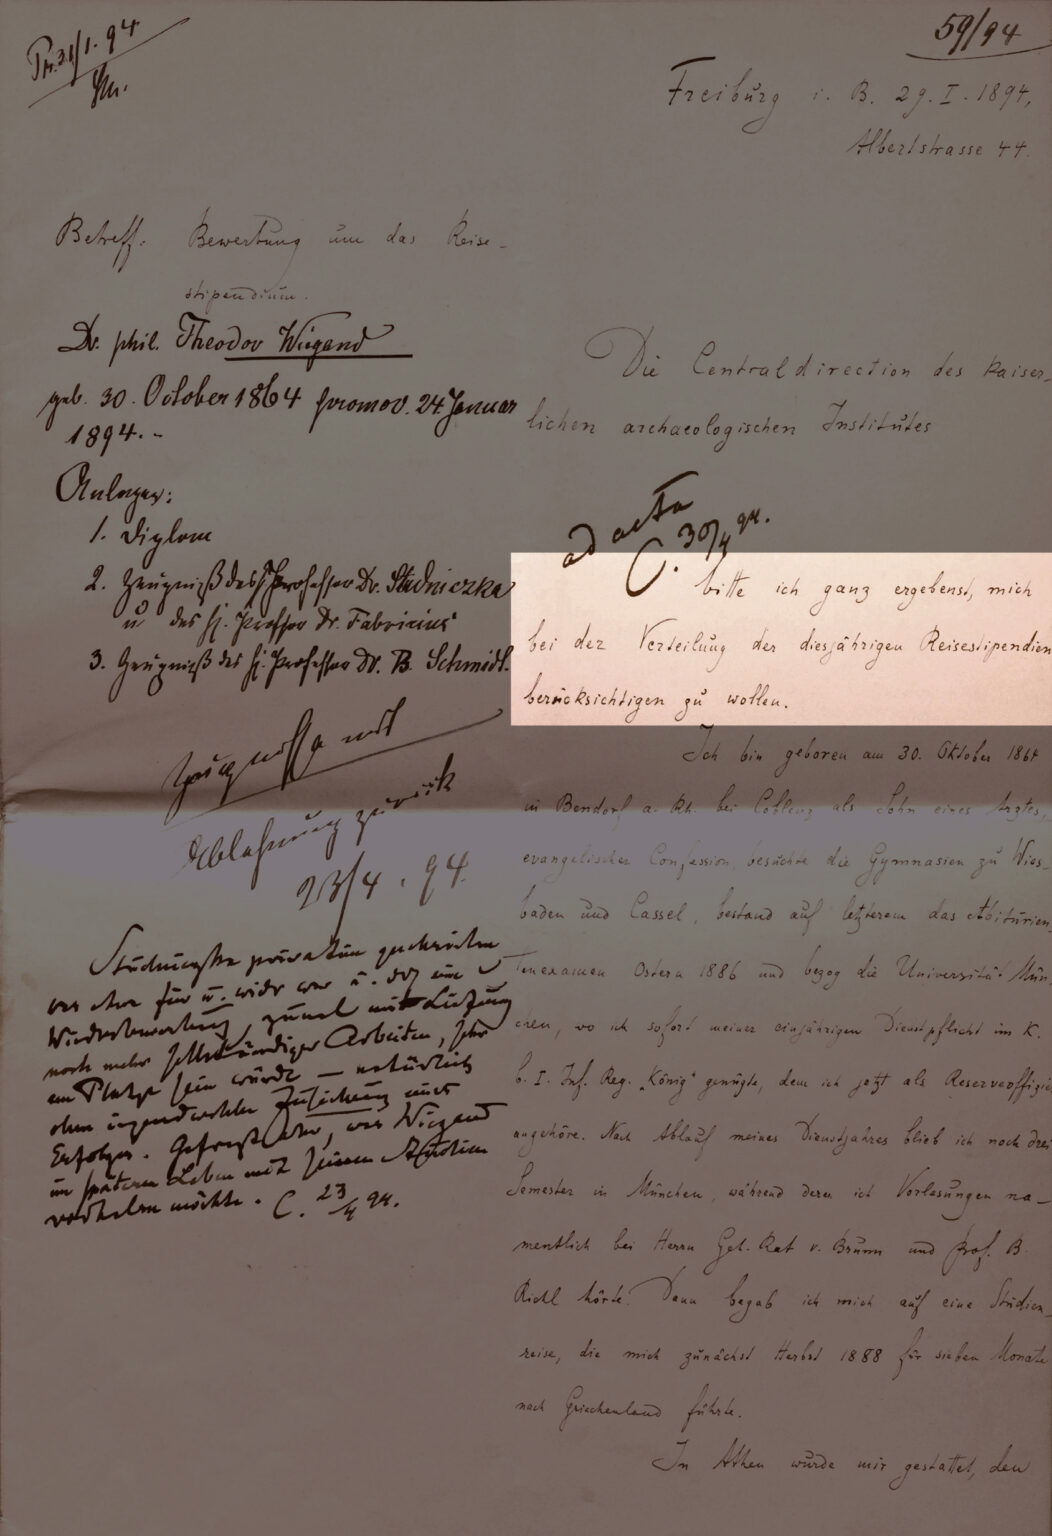 Pr. 31/1. 94
59/94
Freiburg i. B. 29. I. 1894,
Albertstrasse 44.
Betreff: Bewerbung um das Reise-
stipendium.
Dr. phil. Theodor Wiegand
geb. 30. October 1864 promov. 24. Januar
1894. -
Anlagen:
1. Diplom
2. Zeugniß des H. Professor Dr. Studniczka
u des H. Professor Dr. Fabricius
3. Zeugniß des H. Professor Dr. B. Schmidt.
Zeugnisse mit
Ablehnung zurück
23/4. 94.
Studniczka privatim geschrieben
was etwa für u. wider war u. daß eine
Wiederbewerbung, zumal mit
noch mehr selbständiger Arbeiten, sehr
am Platze sein würde — natürlich
ohne irgendwelche Zusicherung eines
Erfolges. Gefragt aber, was Wiegand
im späteren Leben mit seinen Studien
möchte. C. 23/4 94.
Die Centraldirection des kaiser-
lichen archaeologischen Institutes
ad acta
C. 30/4 94.
bitte ich ganz ergebenst, mich
bei der Verteilung der diesjährigen Reisestipendien
berücksichtigen zu wollen.
Ich bin geboren am 30. Oktober 1864
in Bendorf a. Rh. bei Coblenz als Sohn eines Arztes,
evangelischer Confession, besuchte die Gymnasien zu Wies-
baden und Cassel, bestand auf letzterem das Abiturien-
tenexamen Ostern 1886 und bezog die Universität Mün-
chen, wo ich sofort meiner einjährigen Dienstpflicht im K.
b. I. Inf. Reg. „König" genügte, dem ich jetzt als Reserveoffizier
angehöre. Nach Ablauf meines Dienstjahres blieb ich noch drei
Semester in München, während deren ich Vorlesungen na-
mentlich bei Herrn Geh. Rat v. Brunn und Prof. B.
Riehl hörte. Dann begab ich mich auf eine Studien-
reise, die mich zunächst Herbst 1888 für sieben Monate
nach Griechenland führte.
In Athen wurde mir gestattet, den